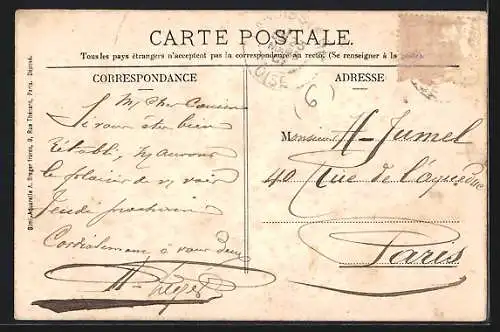 CARTE POSTALE.
Tous les pays étrangers n'acceptent pas la correspondance au recto. (Se renseigner à la poste)
CORRESPONDANCE
ADRESSE
OISE
(6)
Mon cher Cousin
Si vous êtes bien
rétabli, ns aurons
le plaisir de vs voir
Jeudi prochain
Cordialement à vous deux
H. Léger
Monsieur H. Jumel
40 Rue de l'aqueduc
Paris